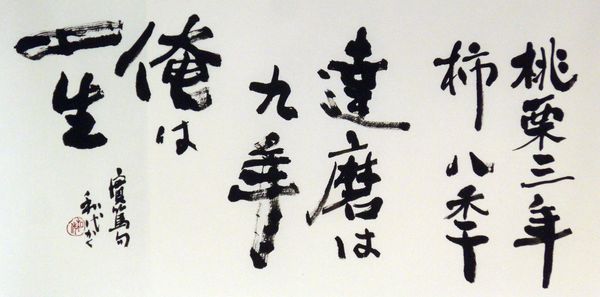 桃栗三年
柿八年
達磨は
九年
俺は
一生
實篤句